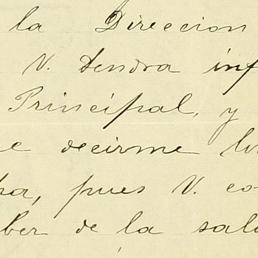 la Direccion
V. tendra inf
Principal, y
e decirme lo
pues V. co
ber de la salu